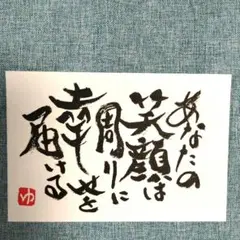 あなたの
笑顔は
周りに
幸せを
届ける
ゆ